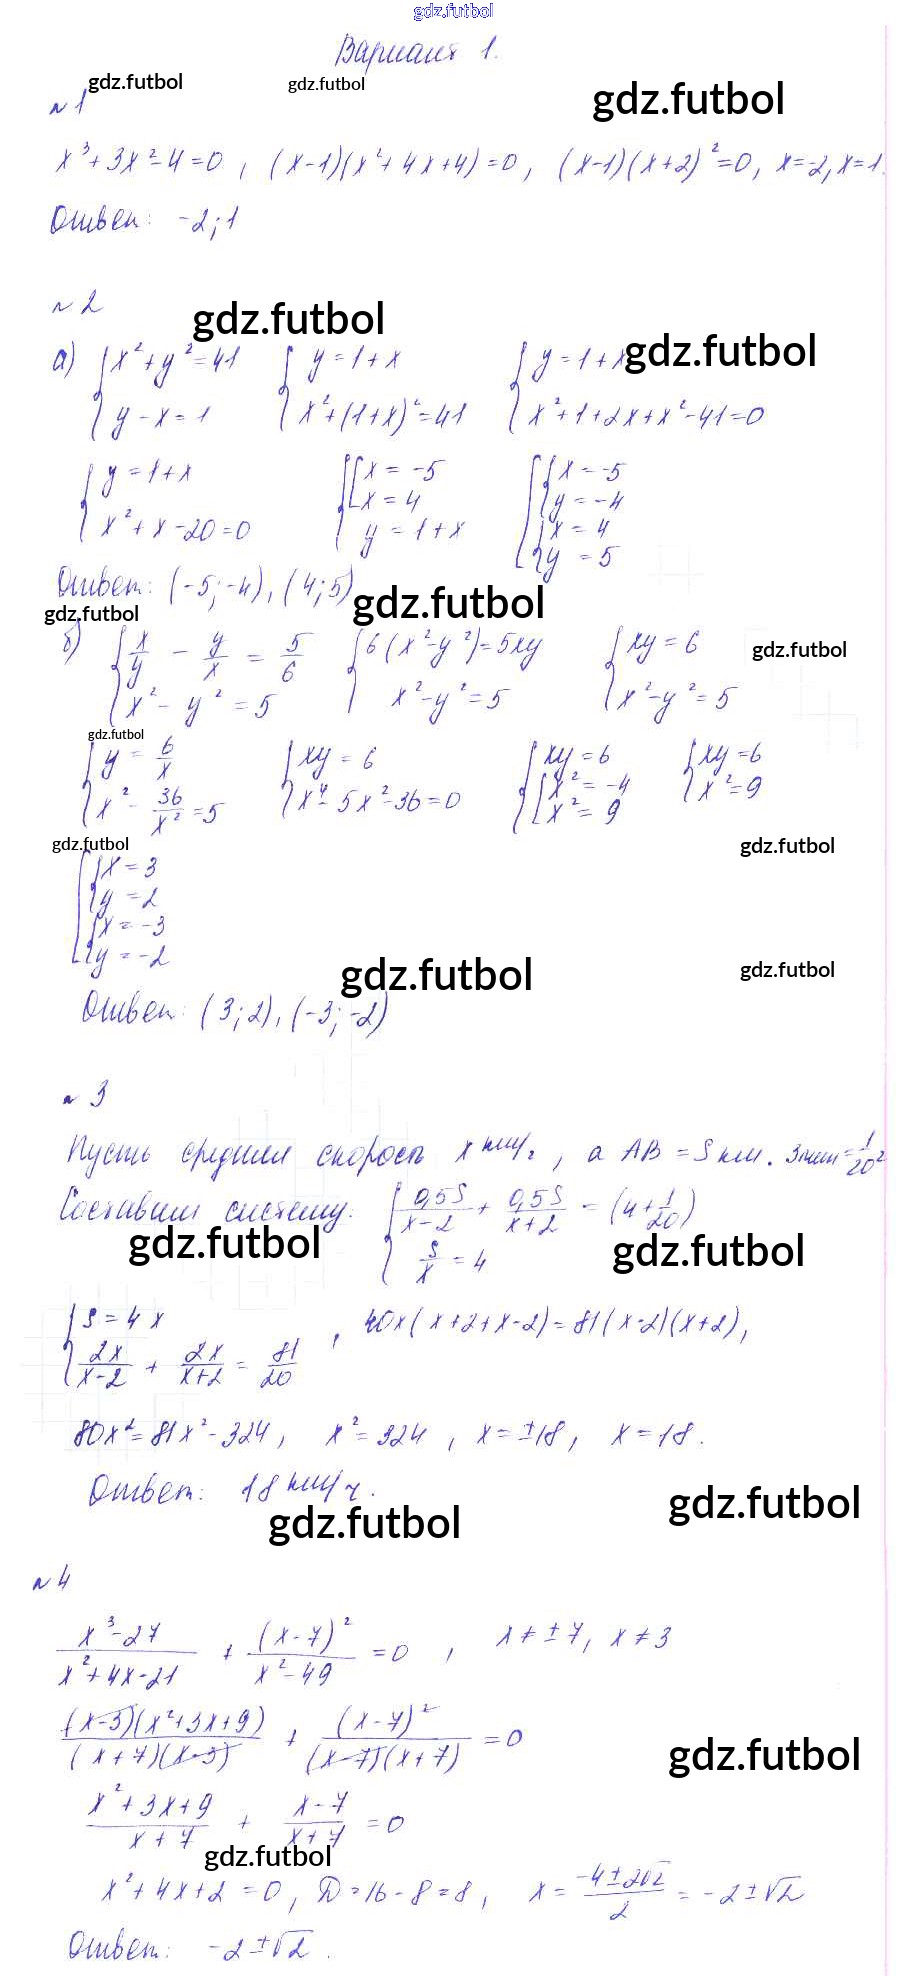 gdz.futbol
Вариант 1.
gdz.futbol gdz.futbol gdz.futbol
№ 1
x³ + 3x² - 4 = 0, (x-1)(x² + 4x + 4) = 0, (x-1)(x+2)² = 0, x = -2, x = 1.
Ответ: -2; 1
№ 2
gdz.futbol
gdz.futbol
а) { x² + y² = 41 { y = 1 + x { y = 1 + x
y - x = 1 x² + (1+x)² = 41 x² + 1 + 2x + x² - 41 = 0
{ y = 1 + x { [ x = -5 [ { x = -5
x² + x - 20 = 0 x = 4 y = -4
y = 1 + x { x = 4
y = 5
Ответ: (-5; -4), (4; 5)
gdz.futbol
gdz.futbol
б) { x/y - y/x = 5/6 { 6(x² - y²) = 5xy { xy = 6
gdz.futbol
x² - y² = 5 x² - y² = 5 x² - y² = 5
gdz.futbol
{ y = 6/x { xy = 6 { xy = 6 { xy = 6
x² - 36/x² = 5 x⁴ - 5x² - 36 = 0 [ x² = -4 x² = 9
x² = 9
gdz.futbol gdz.futbol
[ { x = 3
y = 2
{ x = -3
y = -2
gdz.futbol gdz.futbol
Ответ: (3; 2), (-3; -2)
№ 3
Пусть средняя скорость x км/ч, а AB = S км. 3 мин = 1/20 ч
Составим систему: { 0,5S/(x-2) + 0,5S/(x+2) = (4 + 1/20)
gdz.futbol gdz.futbol
S/x = 4
{ S = 4x
2x/(x-2) + 2x/(x+2) = 81/20 , 40x(x+2+x-2) = 81(x-2)(x+2),
80x² = 81x² - 324, x² = 324, x = ±18, x = 18.
Ответ: 18 км/ч.
gdz.futbol gdz.futbol
№ 4
(x³ - 27)/(x² + 4x - 21) + (x-7)²/(x² - 49) = 0, x ≠ ±7, x ≠ 3
(x-3)(x²+3x+9)/((x+7)(x-3)) + (x-7)²/((x-7)(x+7)) = 0
gdz.futbol
(x² + 3x + 9)/(x + 7) + (x-7)/(x+7) = 0
gdz.futbol
x² + 4x + 2 = 0, D = 16 - 8 = 8, x = (-4 ± 2√2)/2 = -2 ± √2
Ответ: -2 ± √2.